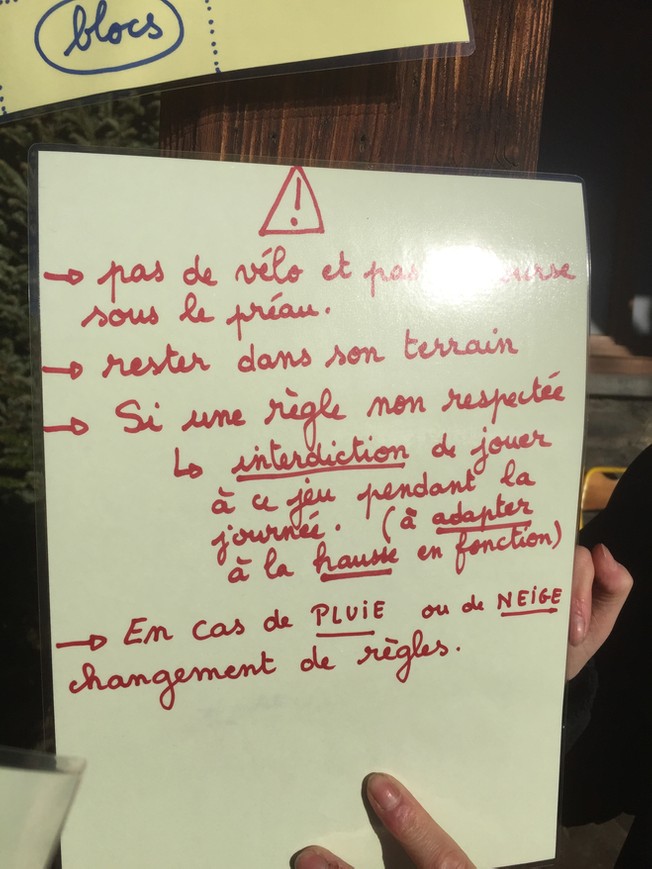 blocs
!
→ pas de vélo et pas urse
sous le préau.
→ rester dans son terrain
→ Si une règle non respectée
↳ interdiction de jouer
à ce jeu pendant la
journée. (à adapter
à la hausse en fonction)
→ En cas de PLUIE ou de NEIGE
changement de règles.